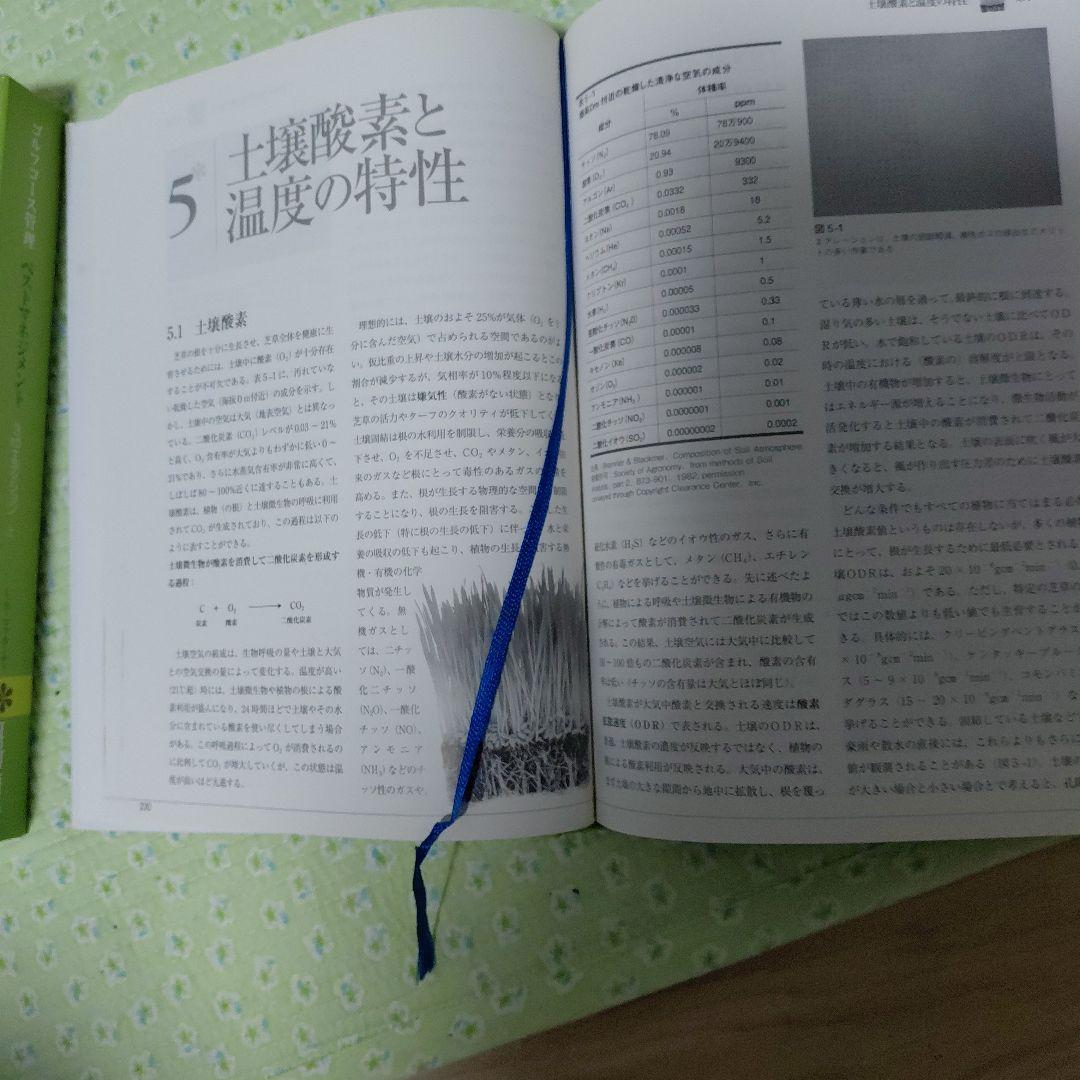 ゴルフコース管理 ベストマネジメント
5 土壌酸素と
温度の特性
5.1 土壌酸素
芝草の根を十分に生長させ、芝草全体を健康に生
育させるためには、土壌中に酸素（O₂）が十分存在
することが不可欠である。表5-1に、汚れていな
い乾燥した空気（海抜0m付近）の成分を示す。し
かし、土壌中の空気は大気（地表空気）とは異なっ
ている。二酸化炭素（CO₂）レベルが0.03～21%
と高く、O₂含有率が大気よりもわずかに低い0～
21%であり、さらに水蒸気含有率が非常に高くて、
しばしば80～100%近くに達することもある。土
壌酸素は、植物（の根）と土壌微生物の呼吸に利用
されてCO₂が生成されており、この過程は以下の
ように表すことができる。
土壌微生物が酸素を消費して二酸化炭素を形成す
る過程：
C + O₂ → CO₂
炭素 酸素 二酸化炭素
土壌空気の組成は、生物呼吸の量や土壌と大気
との空気交換の量によって変化する。温度が高い
時には、土壌微生物や植物の根による酸
素利用が盛んになり、24時間ほどで土壌やその水
分に含まれている酸素を使い尽くしてしまう場合
がある。この呼吸過程によってO₂が消費されるの
に比例してCO₂が増大していくが、この状態は温
度が高いほど先進する。
理想的には、土壌のおよそ25%が気体（O₂を十
分に含んだ空気）で占められる空間であるのがよ
い。仮比重の上昇や土壌水分の増加が起こるとこの
割合が減少するが、気相率が10%程度以下になる
と、その土壌は嫌気性（酸素がない状態）とな
芝草の活力やターフのクオリティが低下して
土壌固結は根の水利用を制限し、栄養分の吸収
下させ、O₂を不足させ、CO₂やメタン、
来のガスなど根にとって毒性のあるガスの
高める。また、根が生長する物理的な空間 制限
することになり、根の生長を阻害する。 した生
長の低下（特に根の生長の低下）に伴 水と栄
養の吸収の低下も起こり、植物の生長 害する無
機・有機の化学
物質が発生し
てくる。無
機ガスとし
ては、二チッ
ソ（N₂）、一酸
化二チッソ
（N₂O）、一酸化
チッソ（NO）、
アンモニア
（NH₃）などのチ
ッソ性のガスや、
230
土壌酸素と温度の特性
表5-1
海抜0m付近の乾燥した清浄な空気の成分
成分 体積率
% ppm
チッソ（N₂） 78.09 78万900
酸素（O₂） 20.94 20万9400
アルゴン（Ar） 0.93 9300
二酸化炭素（CO₂） 0.0332 332
ネオン（Ne） 0.0018 18
ヘリウム（He） 0.00052 5.2
メタン（CH₄） 0.00015 1.5
クリプトン（Kr） 0.0001 1
水素（H₂） 0.00005 0.5
亜酸化チッソ（N₂O） 0.000033 0.33
一酸化炭素（CO） 0.00001 0.1
キセノン（Xe） 0.000008 0.08
オゾン（O₃） 0.000002 0.02
アンモニア（NH₃） 0.000001 0.01
二酸化チッソ（NO₂） 0.0000001 0.001
二酸化イオウ（SO₂） 0.00000002 0.0002
Bremner & Blackmer, Composition of Soil Atmosphere
Society of Agronomy, from methods of Soil
Analysis, part 2, 873-901, 1982, permission
conveyed through Copyright Clearance Center, Inc.
硫化水素（H₂S）などのイオウ性のガス、さらに有
機性の有毒ガスとして、メタン（CH₄）、エチレン
（C₂H₄）などを挙げることができる。先に述べたよ
うに、植物による呼吸や土壌微生物による有機物の
分解によって酸素が消費されて二酸化炭素が生成
される。この結果、土壌空気には大気中に比較して
10～100倍もの二酸化炭素が含まれ、酸素の含有
率は低い（チッソの含有量は大気とほぼ同じ）。
土壌酸素が大気中酸素と交換される速度は酸素
拡散速度（ODR）で表される。土壌のODRは、
土壌酸素の濃度が反映するではなく、植物の
根による酸素利用が反映される。大気中の酸素は、
まず土壌の大きな隙間から地中に拡散し、根を覆っ
図5-1
ている薄い水の層を通って、最終的に根に到達する。
湿り気の多い土壌は、そうでない土壌に比べてOD
Rが低い。水で飽和している土壌のODRは、その
時の温度における（酸素の）溶解度が上限となる。
土壌中の有機物が増加すると、土壌微生物にとって
はエネルギー源が増えることになり、微生物活動が
活発化すると土壌中の酸素が消費されて二酸化炭
素が増加する結果となる。土壌の表面に吹く風が大
きくなると、風が作り出す圧力差のために土壌酸素
交換が増大する。
どんな条件でもすべての植物に当てはまる必
土壌酸素値というものは存在しないが、多くの植
にとって、根が生長するために最低必要とされる
壌ODRは、およそ20×10
である。ただし、特定の芝草の
ではこの数値よりも低い値でも生育することが
きる。具体的には、クリーピングベントグラス
ケンタッキーブルー
ス（5～9×10 コモンバミ
ダグラス（15～20×10
挙げることができる。固結している土壌など
豪雨や散水の直後には、これらよりもさらに
値が観測されることがある（図5-1）。土壌の
が大きい場合と小さい場合とで考えると、孔隙